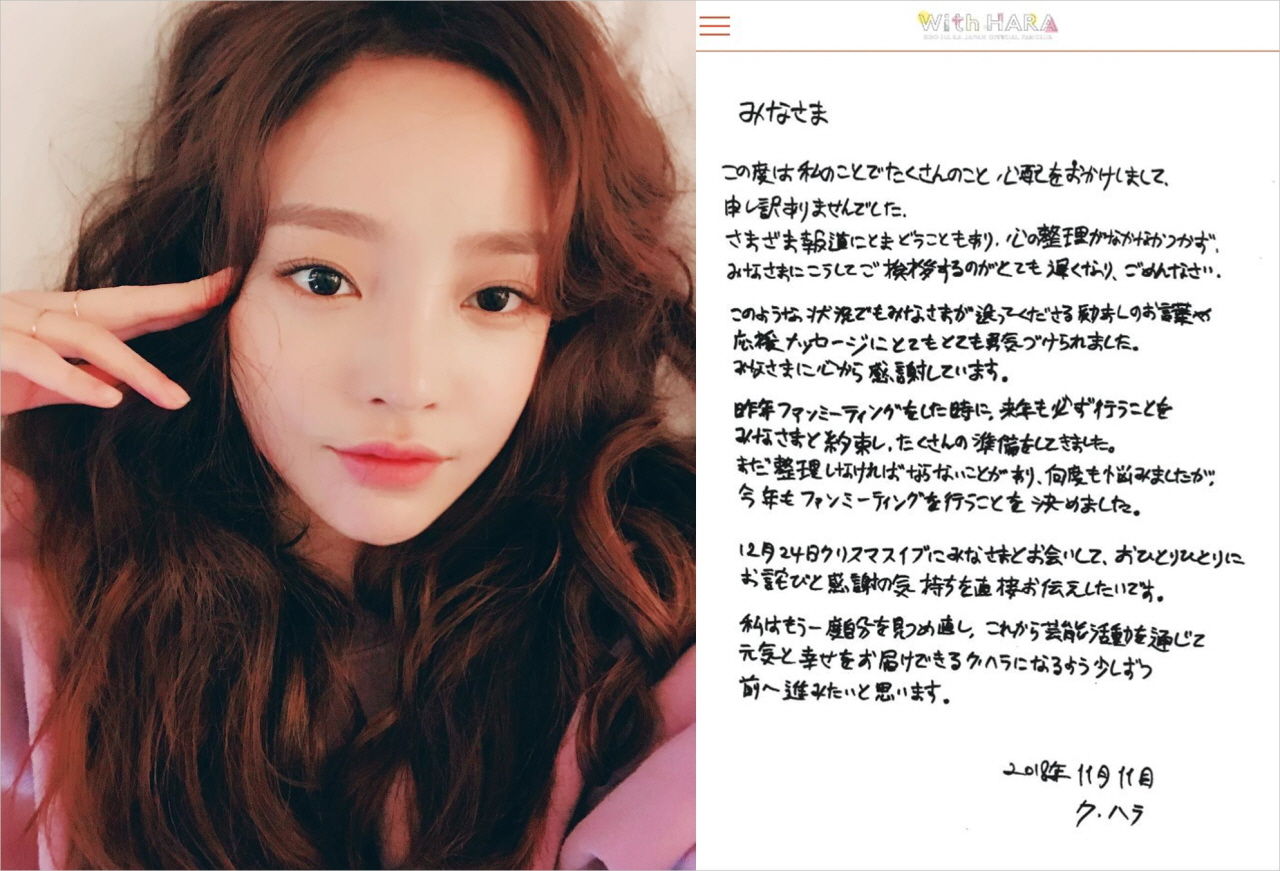 With HARA
みなさま
この度は私のことでたくさんのこと心配をおかけしまして、
申し訳ありませんでした。
さまざま報道にとまどうこともあり、心の整理がなかなかつかず、
みなさまにこうしてご挨拶するのがとても遅くなり、ごめんなさい。
このような状況でもみなさまが送ってくださる励ましのお言葉や
応援メッセージにとてもとても勇気づけられました。
みなさまに心から感謝しています。
昨年ファンミーティングをした時に、来年も必ず行うことを
みなさまと約束し、たくさんの準備をしてきました。
まだ整理しなければならないことがあり、何度も悩みましたが、
今年もファンミーティングを行うことを決めました。
12月24日クリスマスイブにみなさまとお会いして、おひとりひとりに
お詫びと感謝の気持ちを直接お伝えしたいです。
私はもう一度自分を見つめ直し、これから芸能活動を通じて
元気と幸せをお届けできるク・ハラになるよう少しずつ
前へ進みたいと思います。
2018年11月11日
ク・ハラ